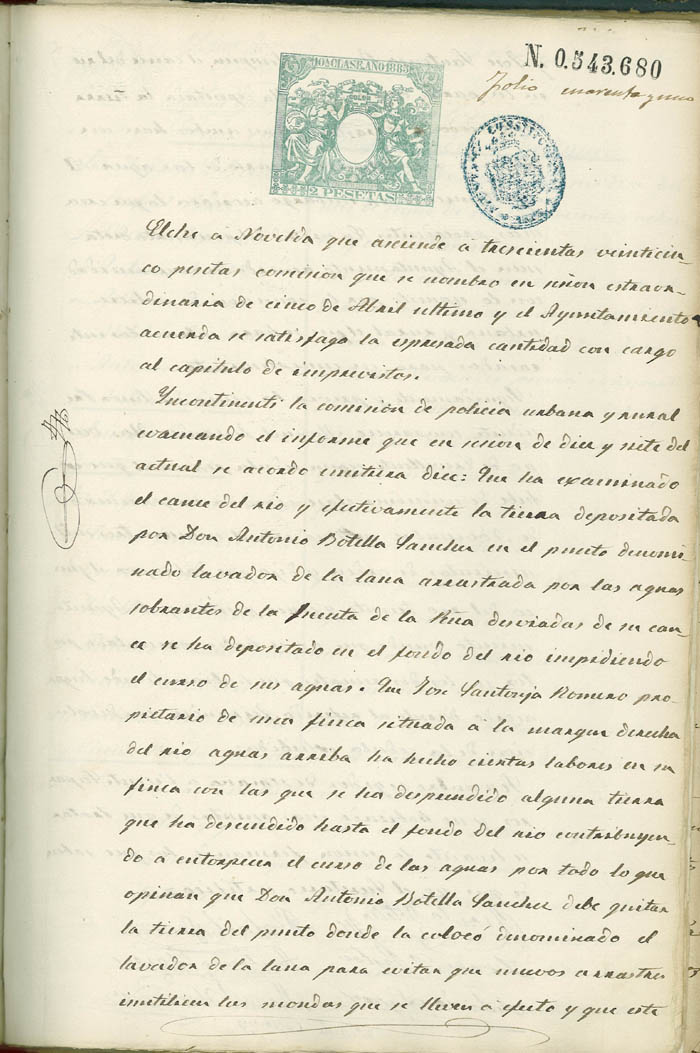 N. 0.543.680
Folio cuarenta y uno
10ª CLASE. AÑO 1885
2 PESETAS
Elche á Novelda que asciende á trescientas veinticin
co pesetas comision que se nombro en sesion estraor-
dinaria de cinco de Abril ultimo y el Ayuntamiento
acuerda se satisfaga la espresada cantidad con cargo
al capitulo de imprevistos.
Yncontinenti la comisión de policia urbana y rural
evacuando el informe que en sesion de diez y siete del
actual se acordo emitiera dice: Que ha examinado
el cauce del rio y efectivamente la tierra depositada
por Don Antonio Botella Sanchez en el punto denomi
nado lavador de la lana arrastrada por las aguas
sobrantes de la fuente de la desviadas de su cau
ce se ha depositado en el fondo del rio impidiendo
el curso de sus aguas. Que Jose Santonja Romero pro-
pietario de una finca situada á la margen derecha
del rio aguas arriba ha hecho ciertas labores en su
finca con las que se ha desprendido alguna tierra
que ha descendido hasta el fondo del rio contribuyen-
do á entorpecer el curso de las aguas por todo lo que
opinan que Don Antonio Botella Sanchez debe quitar
la tierra del punto donde la colocó denominado el
lavador de la lana para evitar que nuevos arrastres
inutilicen las mondas que se lleven á efecto y que este